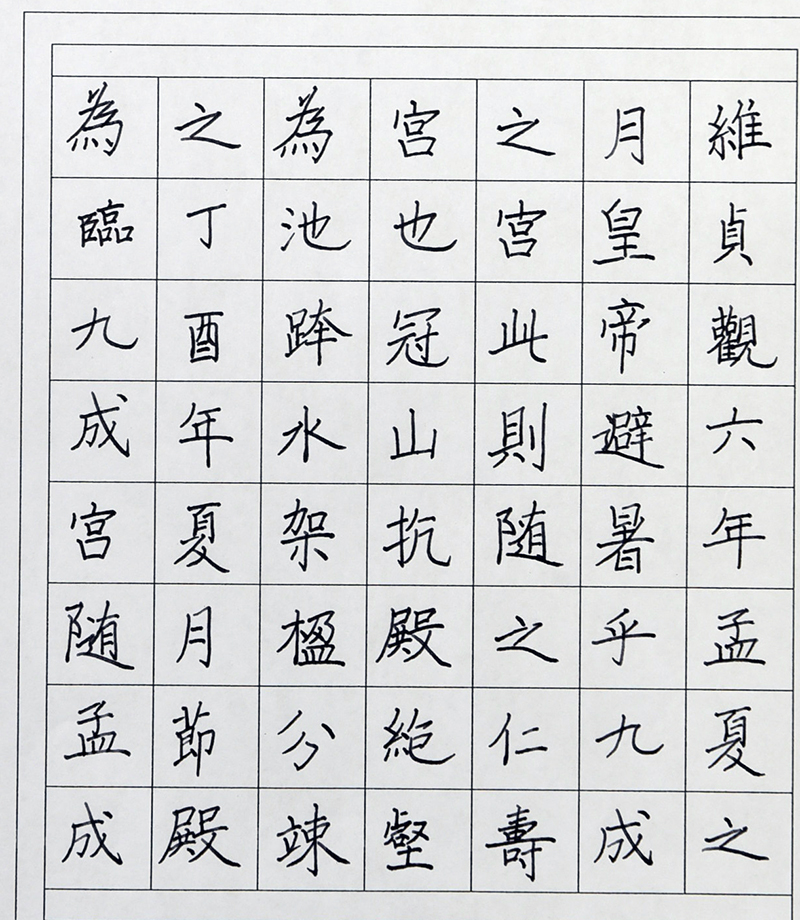 維貞觀六年孟夏之
月皇帝避暑乎九成
之宮此則随之仁壽
宮也冠山抗殿絶壑
為池跨水架楹分竦
之丁酉年夏月節殿
為臨九成宮随孟成